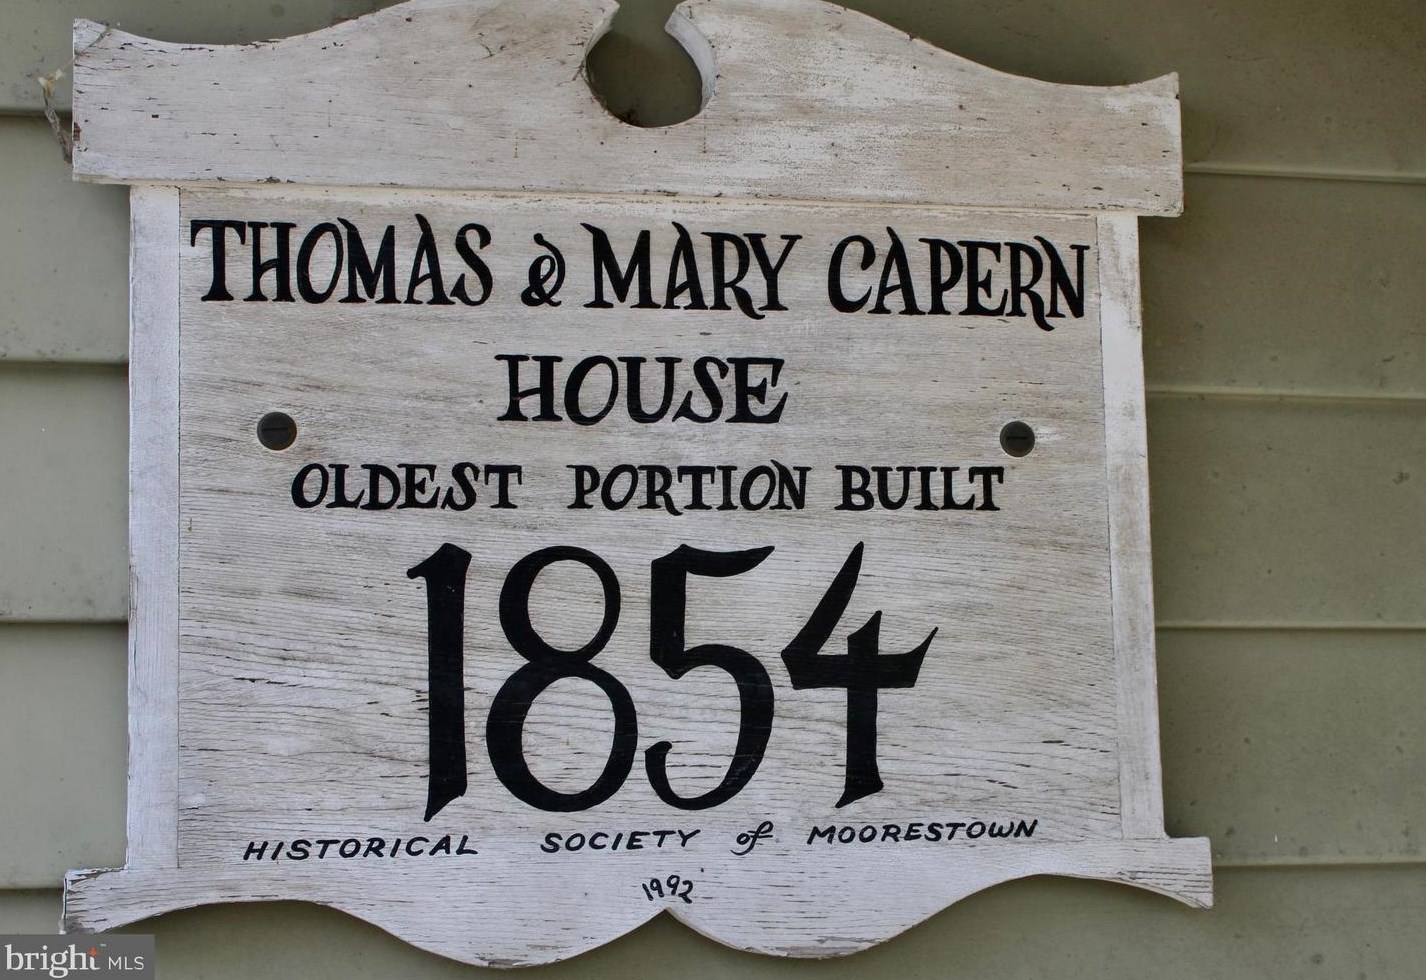 THOMAS & MARY CAPERN
HOUSE
OLDEST PORTION BUILT
1854
HISTORICAL SOCIETY of MOORESTOWN
1992
bright MLS